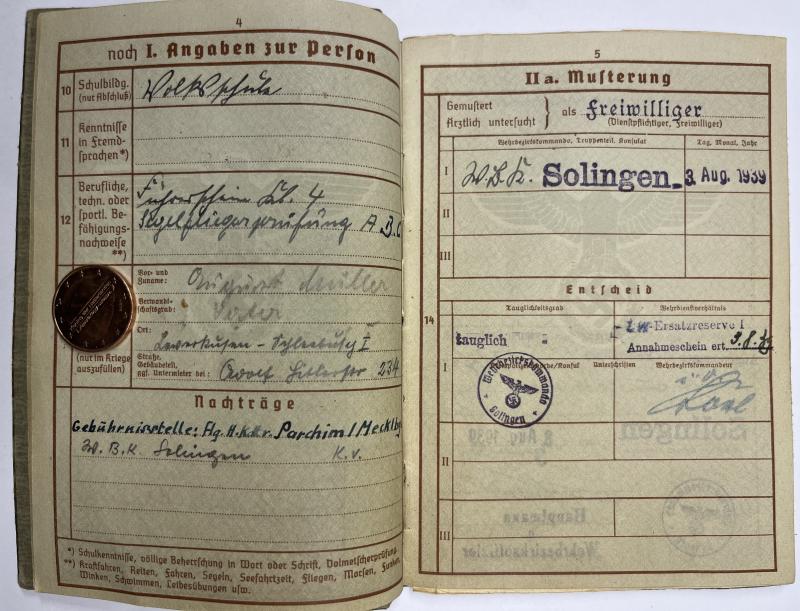 4
noch I. Angaben zur Person
10 Schulbildg. (nur Abschluß)
Volksschule
11 Kenntnisse in Fremdsprachen *)
12 Berufliche, techn. oder sportl. Befähigungsnachweise **)
Führerschein Kl. 4
Segelfliegerprüfung A B. C
Vor- und Zuname:
August Müller
Verwandtschaftsgrad:
Vater
Ort:
Leverkusen - Schlebusch I
(nur im Kriege auszufüllen)
Straße, Gebäudeteil, ggf. Untermieter bei:
Adolf Hitlerstr 234
Nachträge
Gebührnisstelle: Parchim / Mecklbg
W. B. K. Solingen K. v.
*) Schulkenntnisse, völlige Beherrschung in Wort oder Schrift, Dolmetscherprüfung.
**) Kraftfahren, Reiten, Fahren, Segeln, Seefahrtzeit, Fliegen, Morsen, Funken,
Winken, Schwimmen, Leibesübungen usw.
5
IIa. Musterung
Gemustert
Ärztlich untersucht } als Freiwilliger
(Dienstpflichtiger, Freiwilliger)
Wehrbezirkskommando, Truppenteil, Konsulat
Tag, Monat, Jahr
I W.B.K. Solingen 3. Aug. 1939
II
III
Entscheid
14
Tauglichkeitsgrad
Wehrdienstverhältnis
tauglich
Lw-Ersatzreserve I
Annahmeschein ert. 3.8.39
I
Unterschriften
Wehrbezirkskommandeur
Wehrbezirkskommando
Solingen
II
III